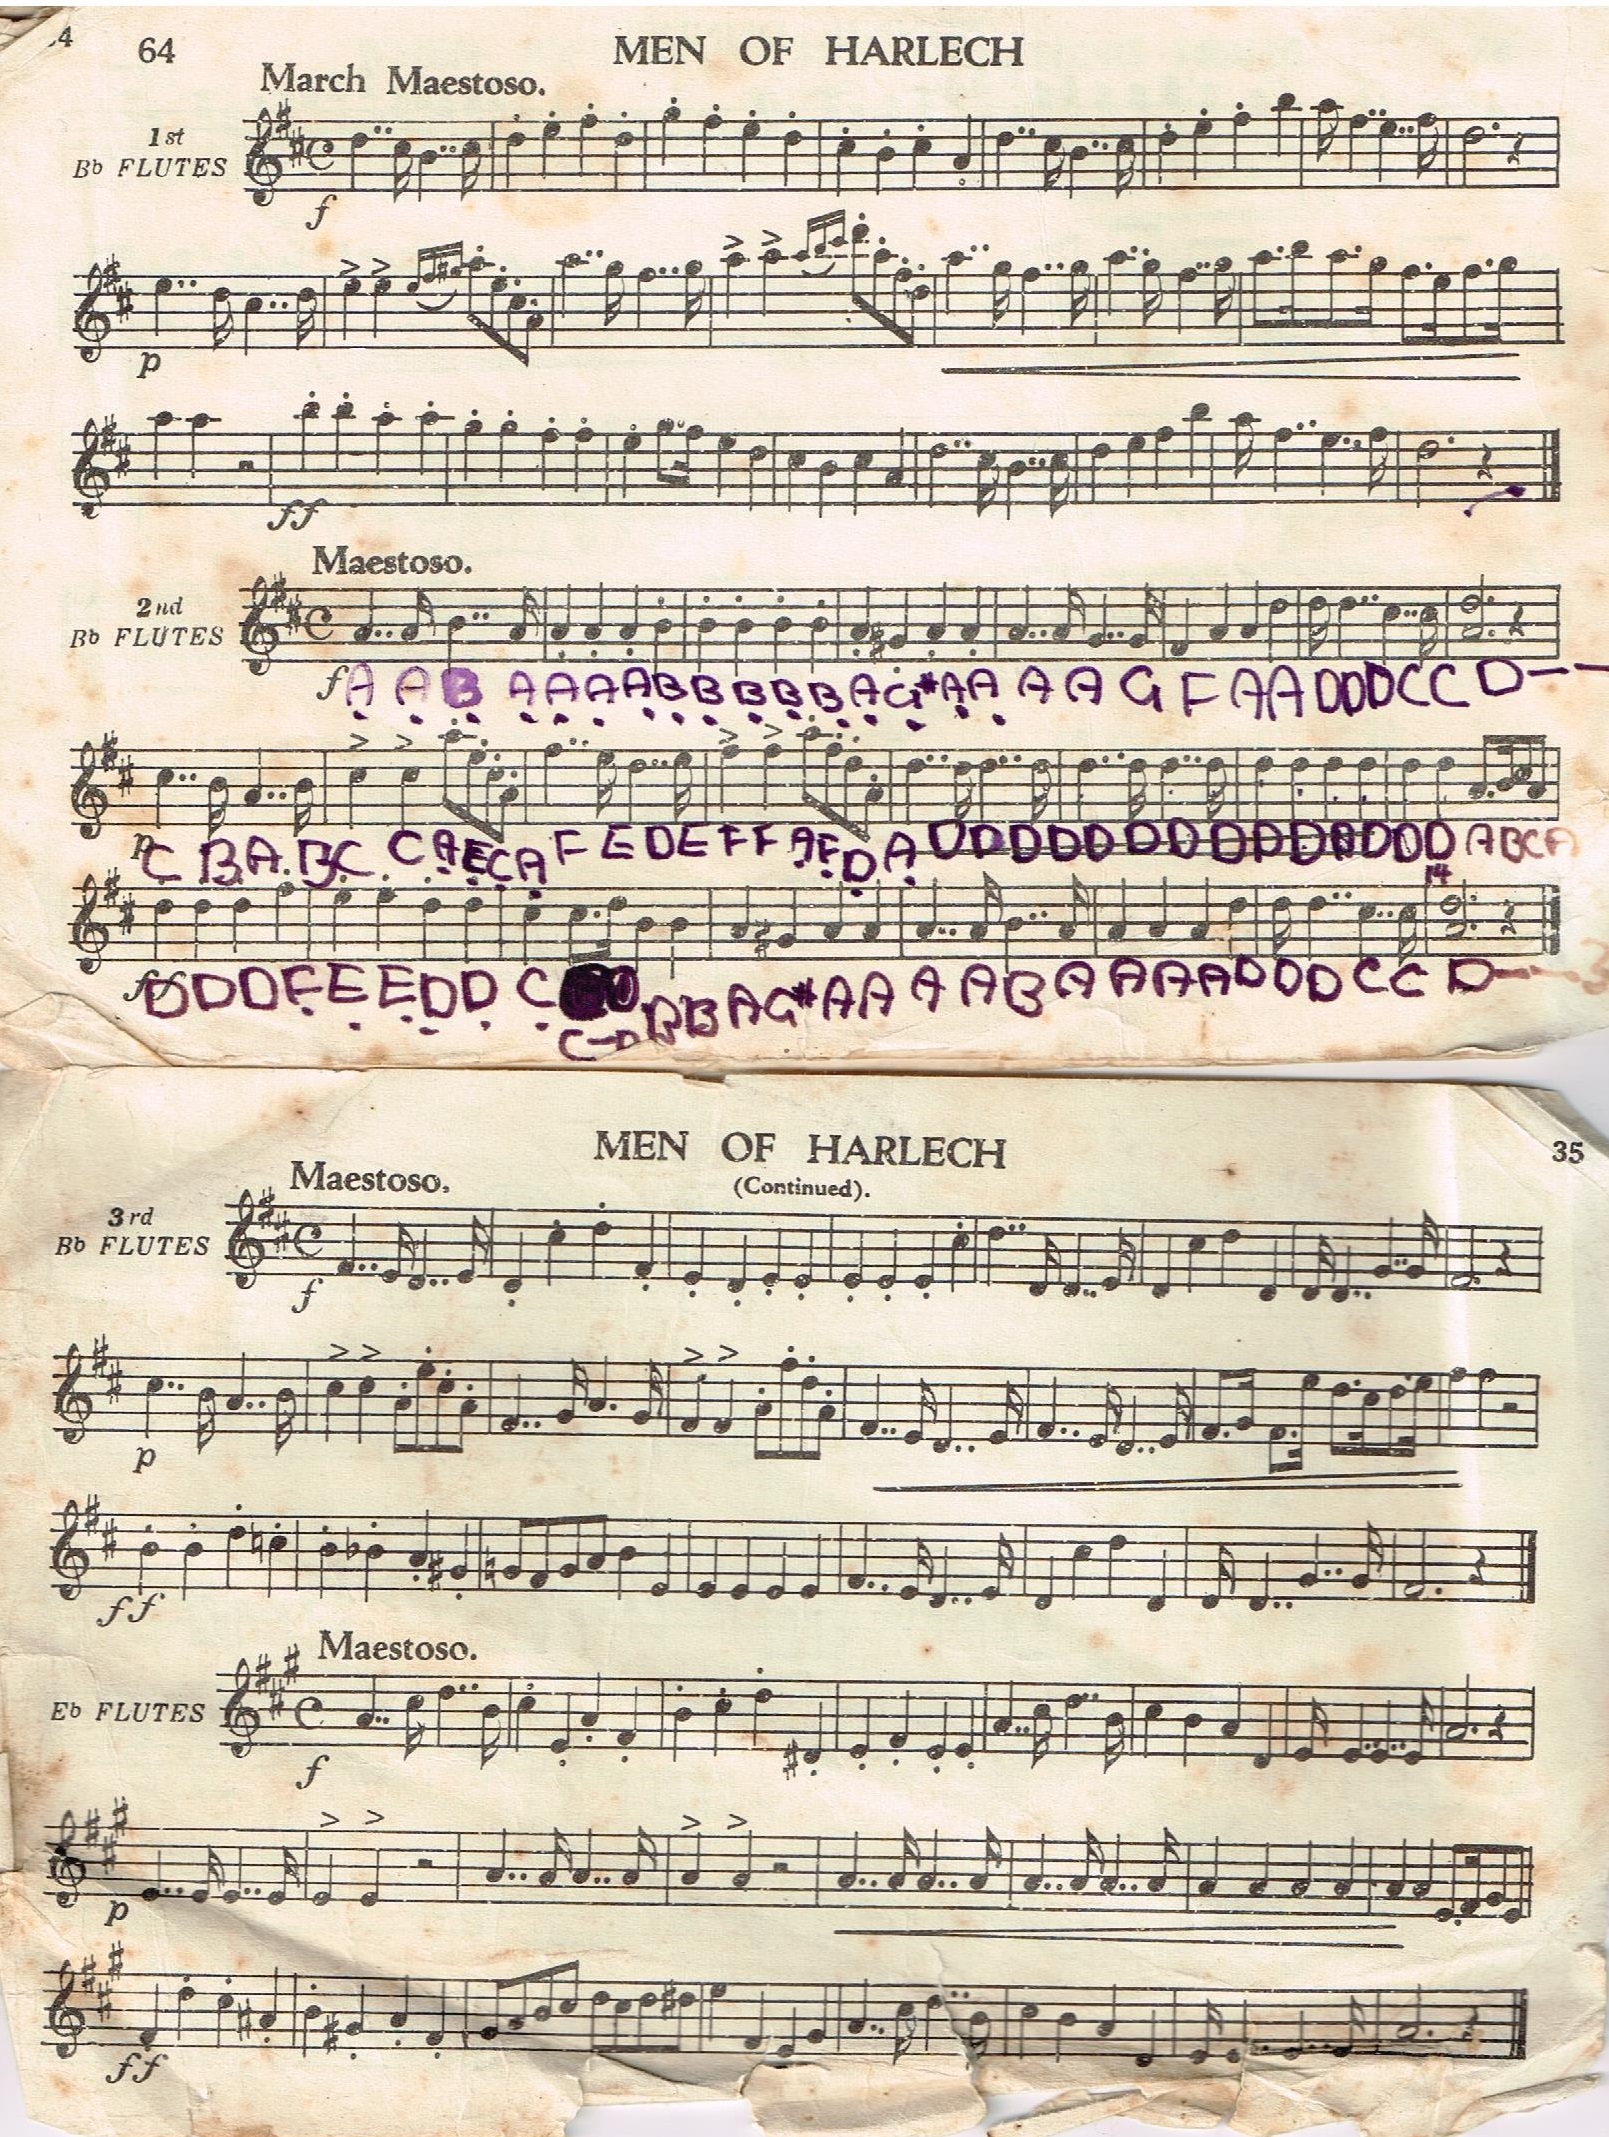 .4 64 MEN OF HARLECH
March Maestoso.
1st
Bb FLUTES
f
p
ff
Maestoso.
2nd
Bb FLUTES
f A A B A A A A B B B B B A G# A A A A G F A A D D D C C D--
p
C B A. B C C A E C A F E D E F F A F D A D D D D D D D D D D D D D D A B C A
14
ff
D D D F E E D D C D B B A G# A A A A B A A A A D D D C C D---3
C-D
MEN OF HARLECH 35
(Continued).
Maestoso.
3rd
Bb FLUTES
f
p
ff
Maestoso.
Eb FLUTES
f
p
ff